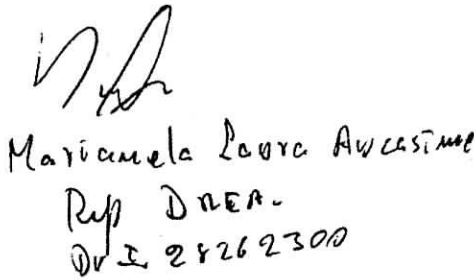 Marianela Laura Awcasime
Rep DREA.
DNI 28262300